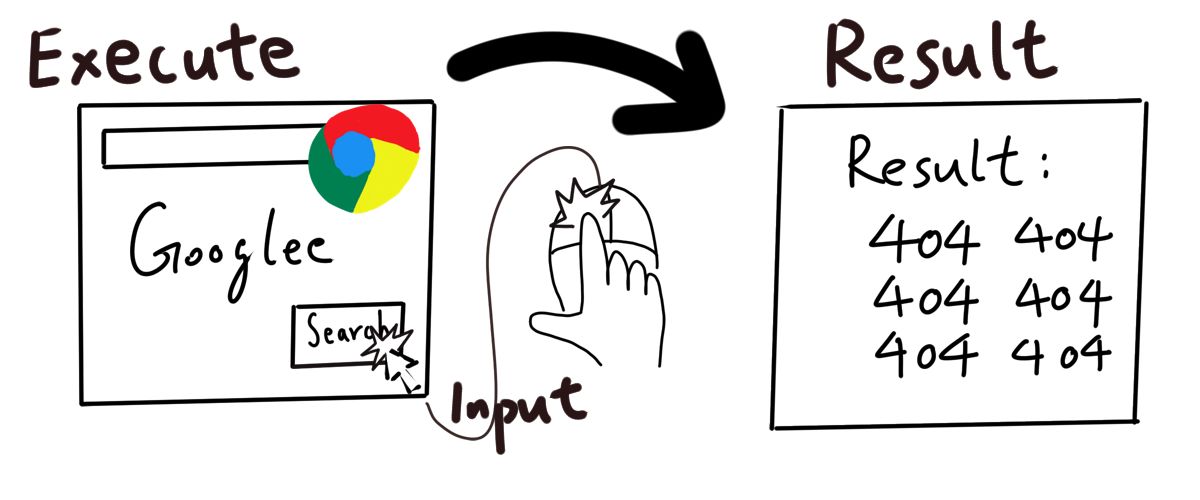 Execute
Googlee
Search
Input
Result
Result:
404 404
404 404
404 404